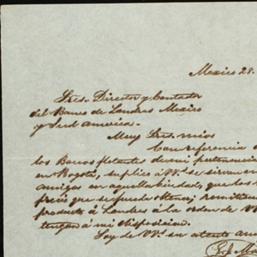 Mexico 28.
Sres. Director y Contador
del Banco de Londres Mexico
y Sud America.
Muy Sres. mios
Con referencia a
los Bonos flotantes de mi pertenencia
en Bogotá, suplico á VV. se sirvan en
amigos en aquella ciudad que los
precio que se pueda obtener, remitiendo
producto á Londres á la orden de VV
tengan á mi disposicion.
Soy de VV. su atento